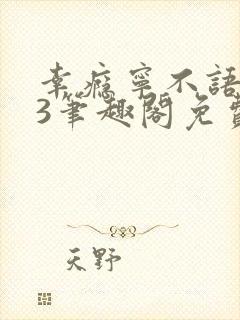 幸瘾寧不語
3筆趣閣免費
天野